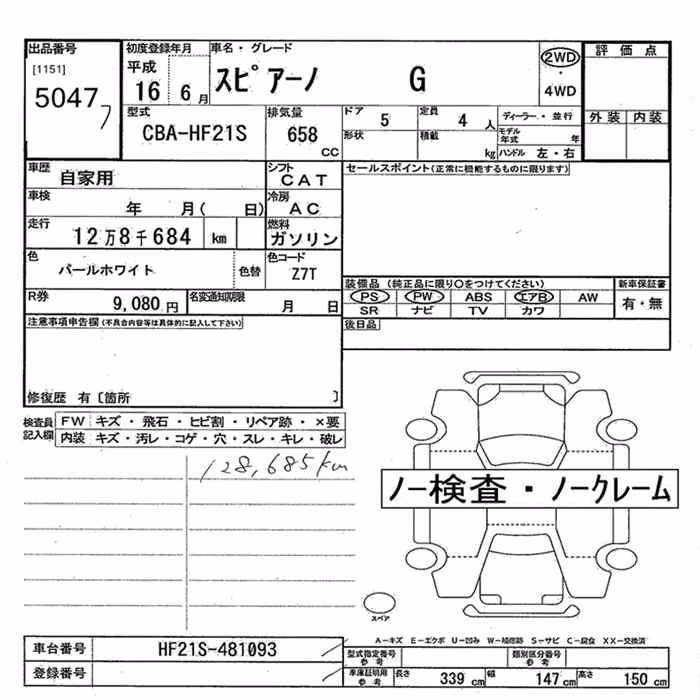 出品番号 初度登録年月 車名・グレード 2WD 評価点
[1151] 平成 スピアーノ G ・
5047 16 6月 4WD
7
型式 排気量 ドア 5 定員 4人 ディーラー・並行 外装 内装
CBA-HF21S 658 cc 形状 積載 kg モデル年式 年
ハンドル 左・右
車歴 自家用 シフト CAT セールスポイント(正常に機能するものに限ります)
車検 年 月( 日) 冷房 AC
走行 12万8千684 km 燃料 ガソリン
色 パールホワイト 色替 色コード Z7T
装備品 (純正品に限り〇をつけてください) 新車保証書
R券 9,080円 名変通知期限 月 日 PS PW ABS エアB AW 有・無
SR ナビ TV カワ
注意事項申告欄(不具合内容等は具体的に記入して下さい) 後日品
修復歴 有〔箇所 〕
検査員記入欄 FW キズ・飛石・ヒビ割・リペア跡・×要
内装 キズ・汚レ・コゲ・穴・スレ・キレ・破レ
128,685km
ノー検査・ノークレーム
スペア
A-キズ E-エクボ U-凹み W-補修跡 S-サビ C-腐食 XX-交換済
車台番号 HF21S-481093 型式指定番号 参考 類別区分番号 参考
登録番号 車庫証明用 参考 長さ 339 cm 幅 147 cm 高さ 150 cm